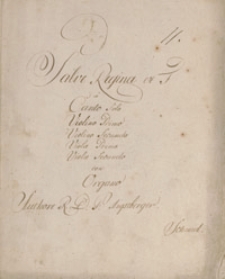 11.
Salve Regina ex F
à
Canto Solo
Violino Primo
Violino Secundo
Viola Prima
Viola Secunda
con
Organo
R. D. P.